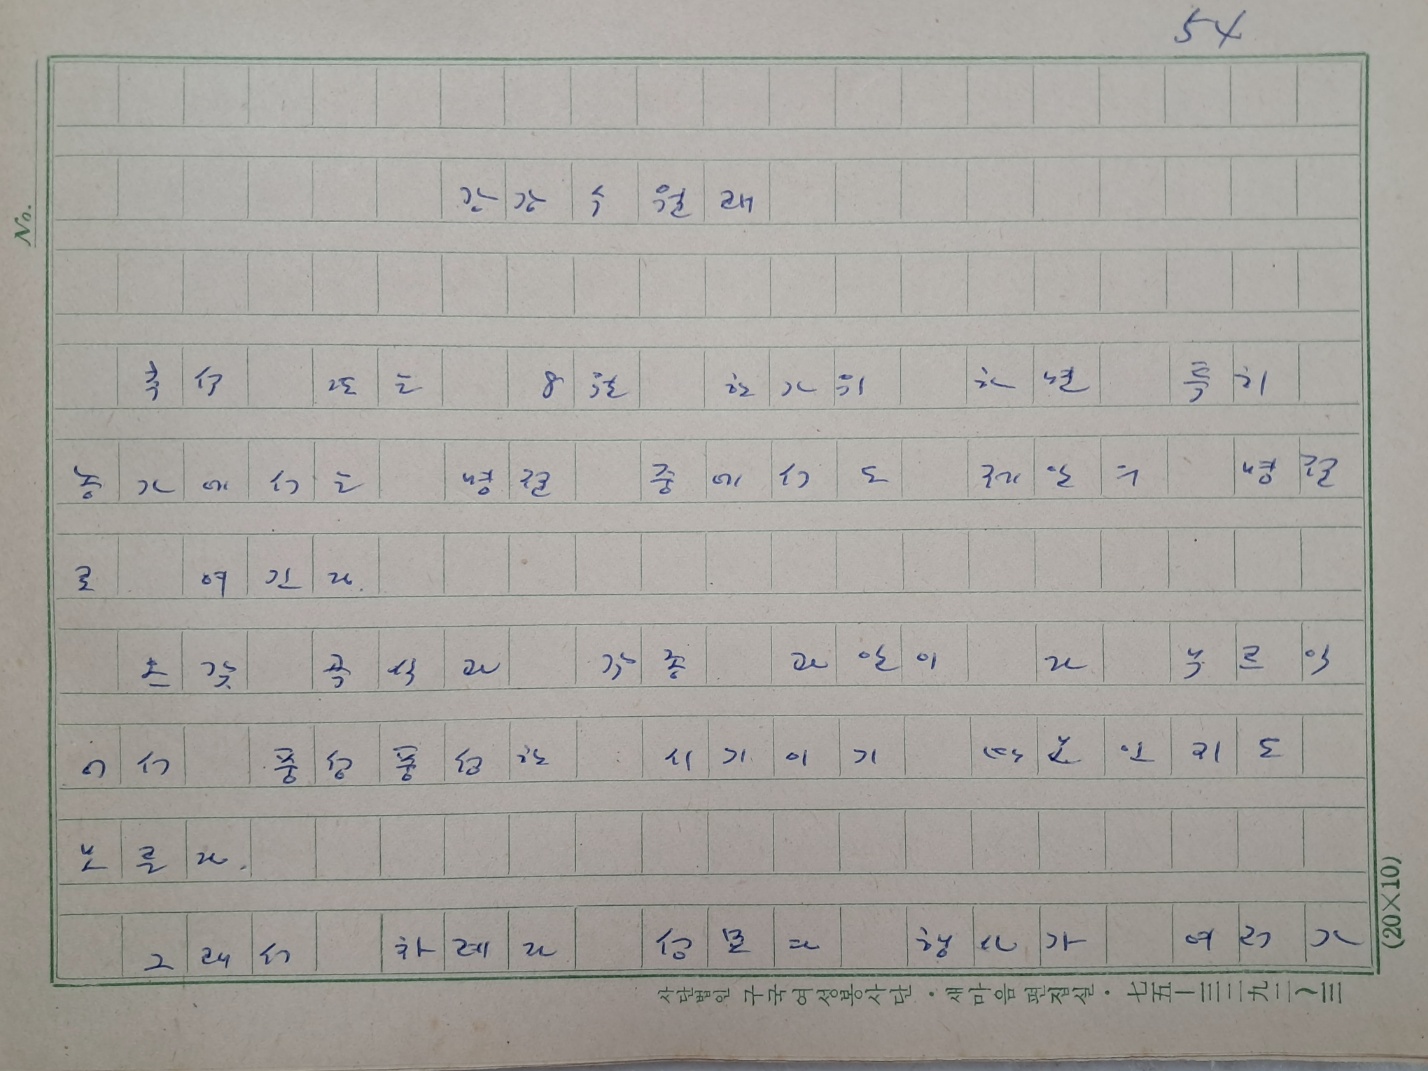 54
강강수월래
추석 또는 8월 한가위 하면 특히
농가에서는 명절 중에서도 제일 큰 명절
로 여긴다.
온갖 곡식과 각종 과일이 다 무르익
어서 풍성풍성한 시기이기 때문인지도
모른다.
그래서 차례다 성묘다 행사가 여러 가
No.
(20×10)
사단법인 구국여성봉사단·새마음편집실·七五一三三一九二~三